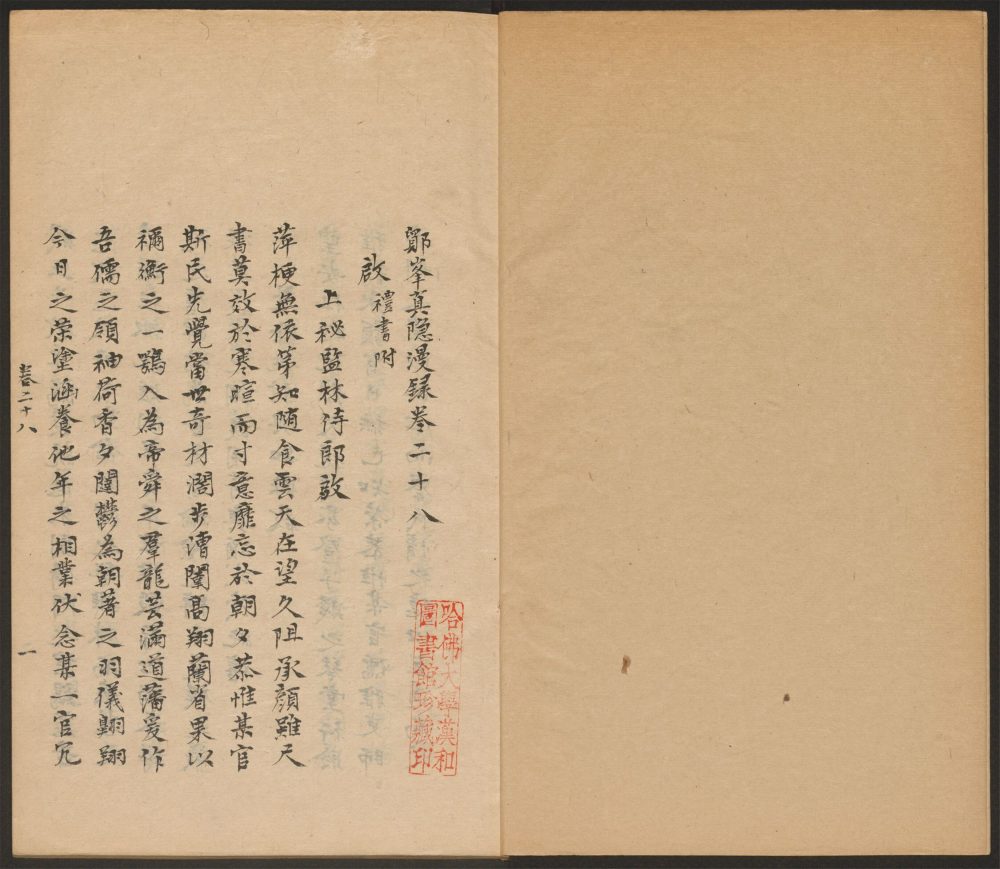 鄮峯真隐漫録卷二十八
啟 禮書附
上秘監林侍郎啟
萍梗無依第知随食雲天在望久阻承顔雖尺
書莫效於寒暄而寸意靡忘於朝夕恭惟某官
斯民先覺當世奇材濶步漕闈高翔蘭省果以
禰衡之一鶚入為帝舜之羣龍芸滿道藩爰作
吾儒之領袖荷香夕闈欝為朝著之羽儀翺翔
今日之荣塗涵養他年之相業伏念某一官冗
卷二十八
一
哈佛大學漢和
圖書館珍藏印